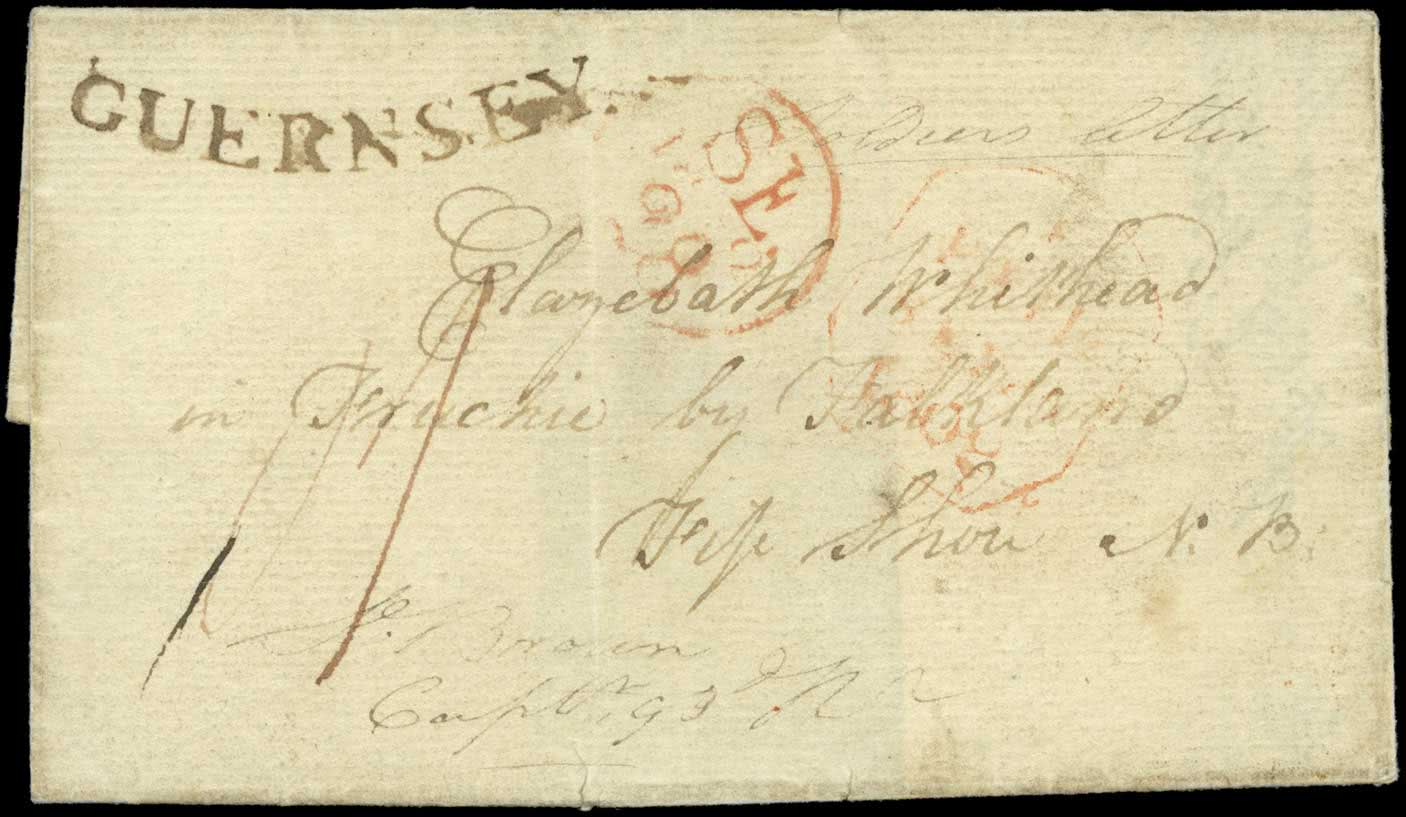 GUERNSEY.
Soldiers Letter
Elazebath Whithead
in Fruchie by Falkland
Fife Shou N. B.
Brown
Captn. 93d Rt